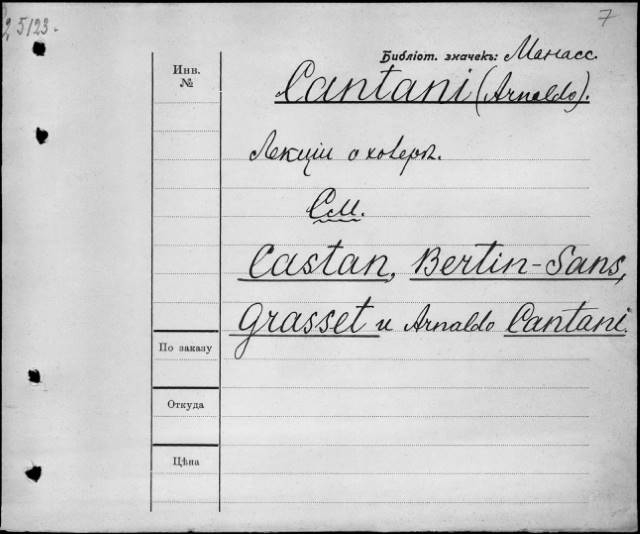 5123.
7
Библіот. значекъ: Манасс.
Инв.
№
Cantani (Arnaldo).
Лекціи о холерѣ.
См.
Castan, Bertin-Sans,
Grasset и Arnaldo Cantani.
По заказу
Откуда
Цѣна